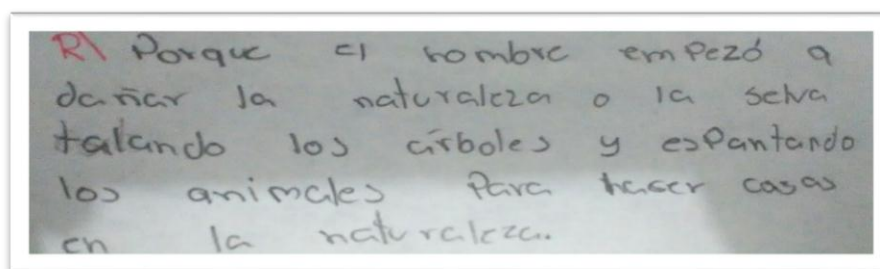 R\ Porque el hombre empezó a
dañar la naturaleza o la selva
talando los árboles y espantando
los animales Para hacer casas
en la naturaleza.